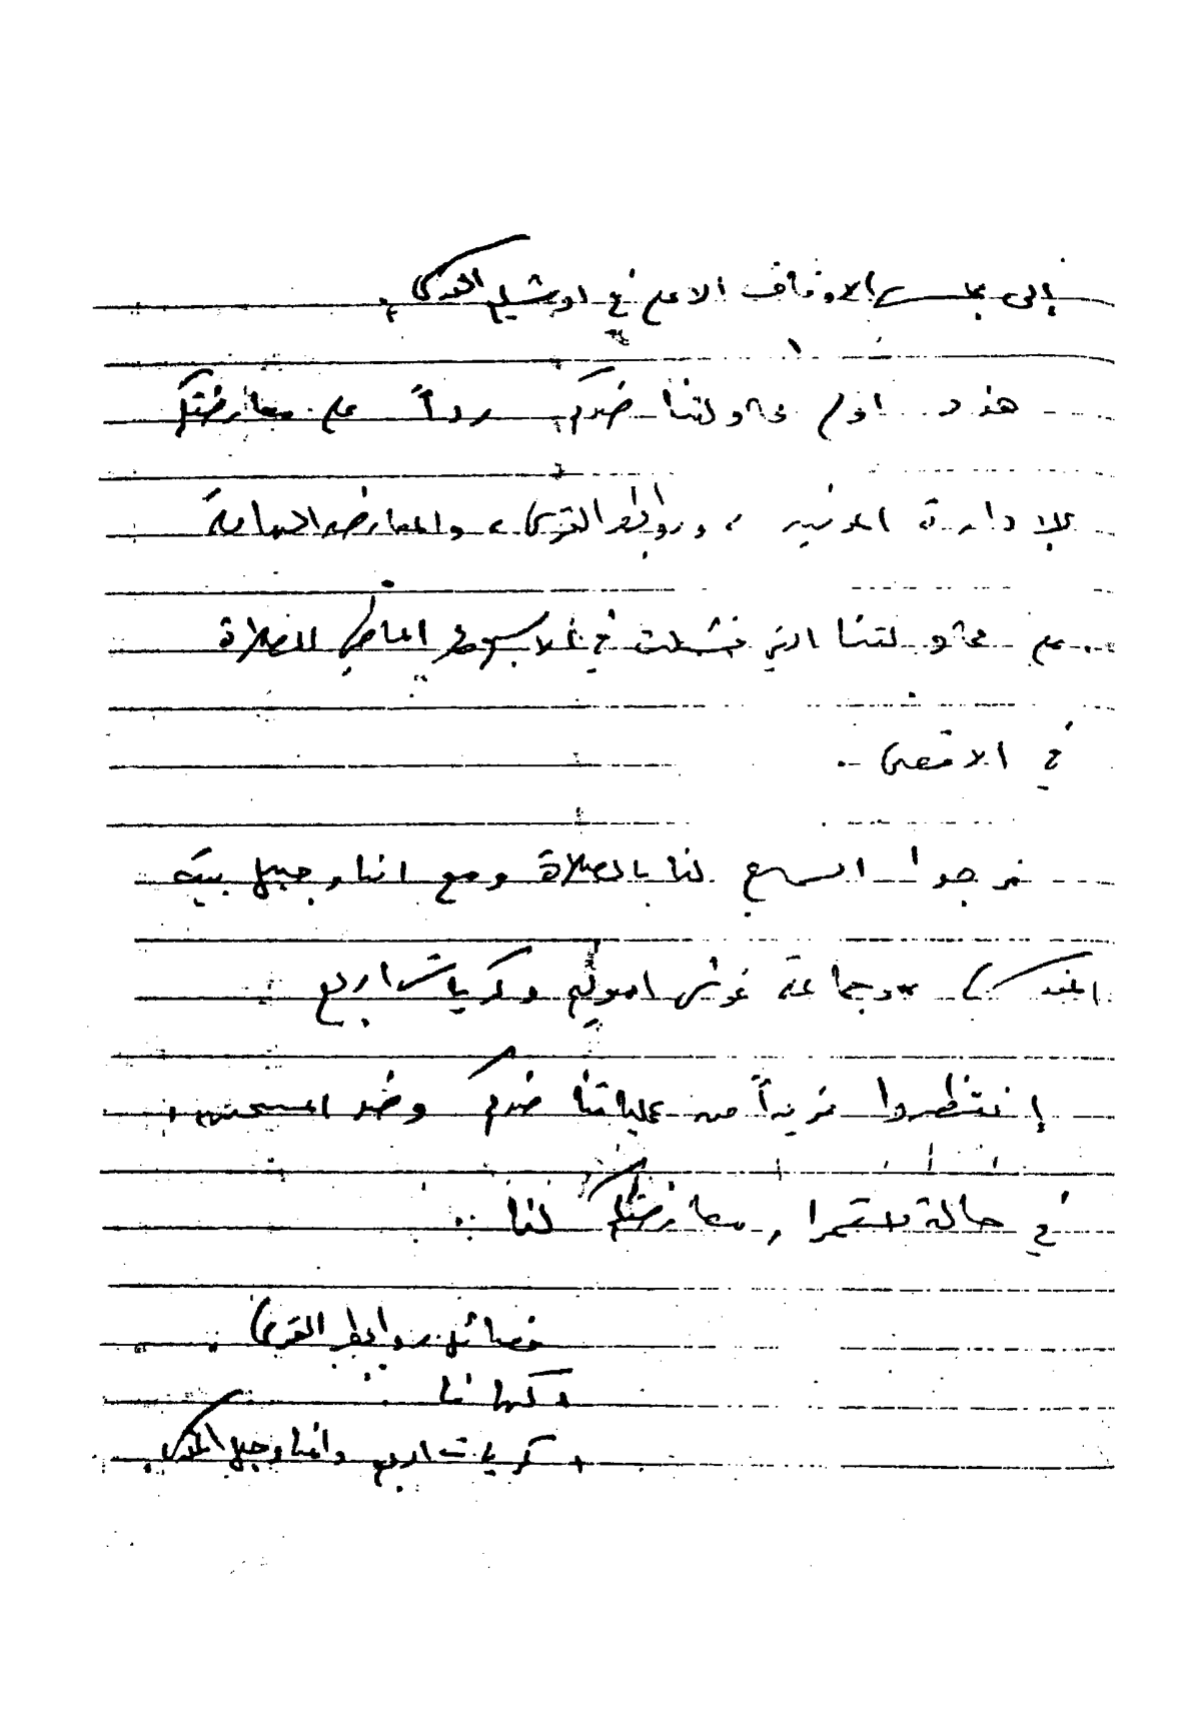 إلى مجلس الاوقاف الاعلى في اورشليم القدس
هذه اول محاولتنا ضدكم رداً على معارضتكم
للإدارة المدنية ، وروابط القرى ، والمعارضة
على محاولتنا التي فشلت في الاسبوع الماضي للصلاة
في الاقصى ..
نرجوا السماح لنا بالصلاة ومع امناء جبل بيت
المقدس وجماعة غوش امونيم وكريات اربع
إنتظروا مزيداً من عملياتنا ضدكم وضد المسيحيين
في حالة استمرار معارضتكم لنا ..
فصائل روابط القرى
وكهانا
وكريات اربع وامناء جبل